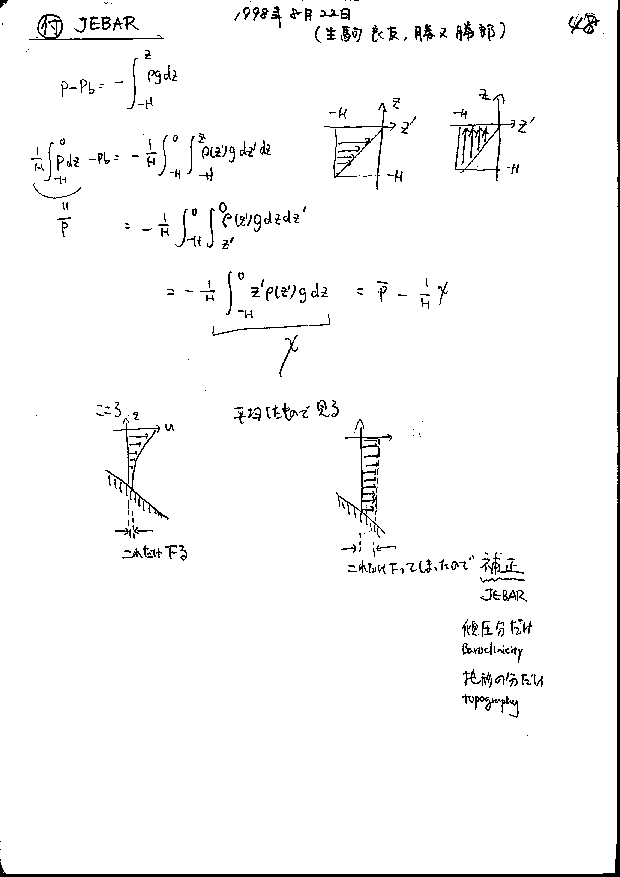 付 JEBAR
1998年8月22日
(生駒 良友, 勝又 勝郎)
48
P - Pb = -∫_{-H}^{z} ρg dz
1/H ∫_{-H}^{0} P dz - Pb = -1/H ∫_{-H}^{0} ∫_{-H}^{z} ρ(z')g dz' dz
" P̄
= -1/H ∫_{-H}^{0} ∫_{z'}^{0} ρ(z')g dz dz'
= -1/H ∫_{-H}^{0} z'ρ(z')g dz = P̄ - 1/H χ
χ
-H z z' -H
-H z z' -H
z u
平均したもので見る
これだけ下る
これだけ下ってしまったので 補正
JEBAR
傾圧分だけ
Baroclinicity
地形の分だけ
topography